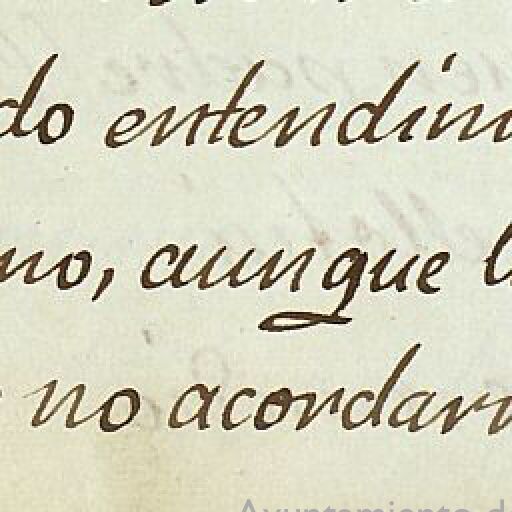 do entendim
no, aunque l
no acordar
Ayuntamiento de